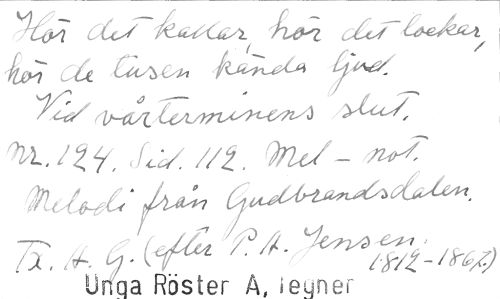 Hör det kallar, hör det lockar,
hör de tusen kända ljud.
Vid vårterminens slut.
Nr. 124. Sid. 112. Mel - not.
Melodi från Gudbrandsdalen.
Tx. A. G. (efter P. A. Jensen.
1812-1867.)
Unga Röster A, Tegner